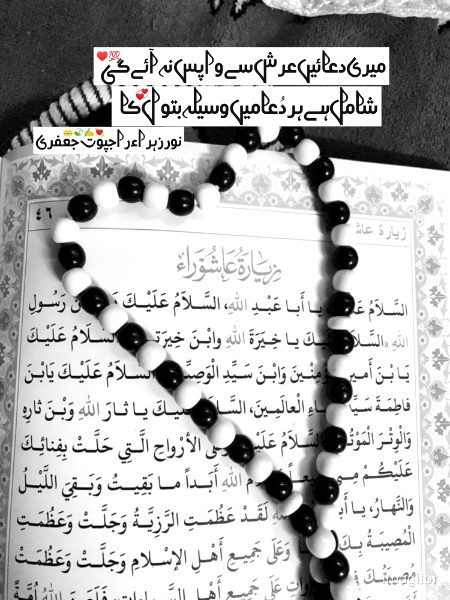 میری دعائیں عرش سے واپس نہ آئے گی
شامل ہے ہر دُعا میں وسیلہ بتول کا
نور زہراء راجپوت جعفری
زيارة عاش
٤٦
زِيَارَةُ عَاشُورَاء
السَّلاَمُ عَلَيْكَ يا أَبا عَبْدِ اللهِ، السَّلاَمُ عَلَيْكَ رَسُولِ
اللهِ السَّلا يْكَ يا خِيَرَةَ اللهِ وابْنَ خِيَرَتِهِ السَّلاَمُ عَلَيْكَ
يَا بْنَ أَمِيرِ مِنِينَ وَابْنَ سَيِّدِ الْوَصِيِّ السَّلاَمُ عَلَيْكَ يَابْنَ
فاطِمَةَ سَيِّ ءِ الْعالَمِينَ، السَّلا يْكَ يا ثارَ اللهِ وَبْنَ ثارِهِ
وَالْوِتْرَ الْمَوْتُ السَّلامُ عَلَيْ ى الأرْواحِ الَّتِي حَلَّتْ بِفِنائِكَ
عَلَيْكُمْ مِنِّي عاً اللهِ أَبَداً ما بَقِيتُ وَبَقِيَ اللَّيْلُ
وَالنَّهارُ، يا أَبا اللهِ لَقَدْ عَظُمَتِ الرَّزِيَّةُ وَجَلَّتْ وَعَظُمَتِ
الْمُصِيبَةُ بِكَ وَعَلَى جَمِيعِ أَهْلِ الإسْلامِ وَجَلَّتْ وَعَظُمَتْ
مُصِيبَتُكَ فِي واتِ عَلَى جَمِيعِ أَهْلِ السَّماواتِ، فَلَعَنَ اللهُ أُمَّةً